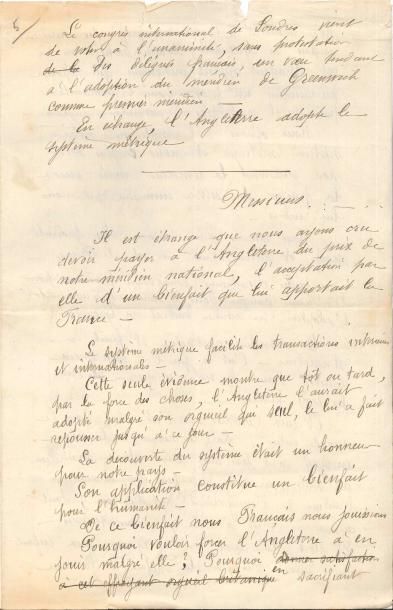 5/
Le congrès international de Londres vient
de voter à l'unanimité, sans protestation
de la des délégués français, un vœu tendant
à l'adoption du méridien de Greenwich
comme premier méridien —
En échange, l'Angleterre adopte le
système métrique
Messieurs
Il est étrange que nous ayons cru
devoir payer à l'Angleterre du prix de
notre méridien national, l'acceptation par
elle d'un bienfait que lui apportait la
France —
Le système métrique facilite les transactions intérieures
et internationales —
Cette seule évidence montre que tôt ou tard,
par la force des choses, l'Angleterre l'aurait
adopté malgré son orgueil qui seul, le lui a fait
repousser jusqu'à ce jour —
La découverte du système était un honneur
pour notre pays —
Son application constitue un bienfait
pour l'humanité —
De ce bienfait nous Français nous jouissions
Pourquoi vouloir forcer l'Angleterre à en
jouir malgré elle ? Pourquoi donner satisfaction
à cet effrayant orgueil britannique en sacrifiant